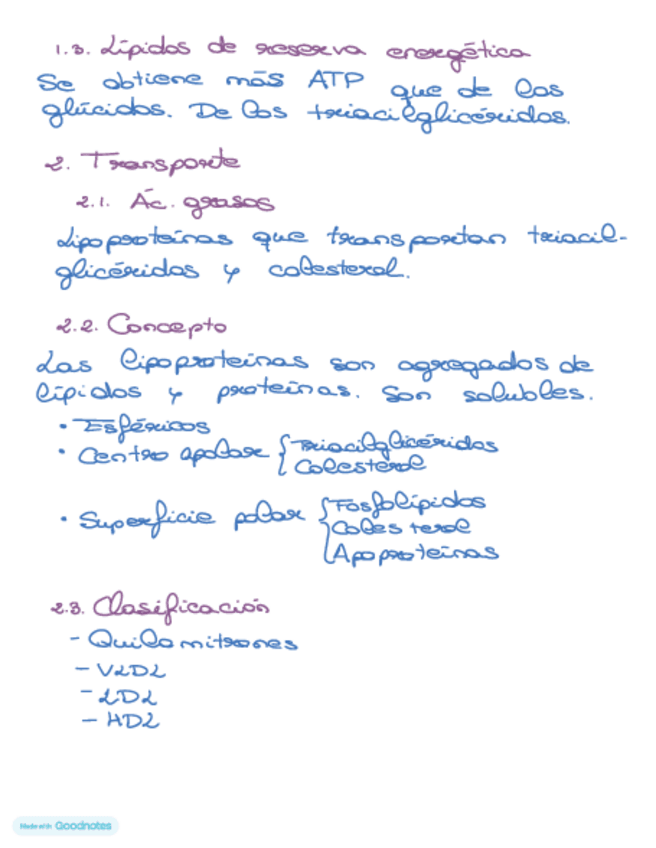 1.3. Lípidos de reserva energética
Se obtiene más ATP que de los
glúcidos. De los triacilglicéridos.
2. Transporte
2.1. Ác. grasos
Lipoproteínas que transportan triacil-
glicéridos y colesterol.
2.2. Concepto
Las lipoproteínas son agregados de
lípidos y proteínas. Son solubles.
• Esféricos
• Centro apolar { Triacilglicéridos
Colesterol
• Superficie polar { Fosfolípidos
Colesterol
Apoproteínas
2.3. Clasificación
- Quilomitrones
- VLDL
- LDL
- HDL
Made with Goodnotes